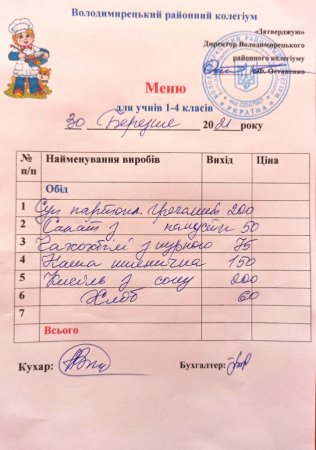 Володимирецький районний колегіум
«Затверджую»
Директор Володимирецького
районного колегіуму
Люб. Остапенко
Меню
для учнів 1-4 класів
30 Березня 2021 року
№ п/п Найменування виробів Вихід Ціна
Обід
1 Суп картопл. 200
2 Салат з капусти 50
3 Чахохбілі з куркою 75
4 Каша пшенична 150
5 Кисіль з соку 200
6 Хліб 60
7
Всього
Кухар: Бухгалтер: